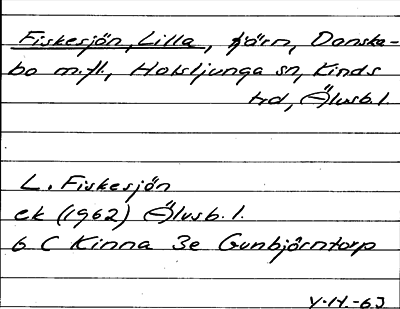 Fiskesjön, Lilla, tjärn, Danska-
bo m.fl., Holsljunga sn, Kinds
hd, Älvsb. l.
L. Fiskesjön
ek (1962) Älvsb. l.
6 C Kinna 3e Gunbjörntorp
V.H.-63